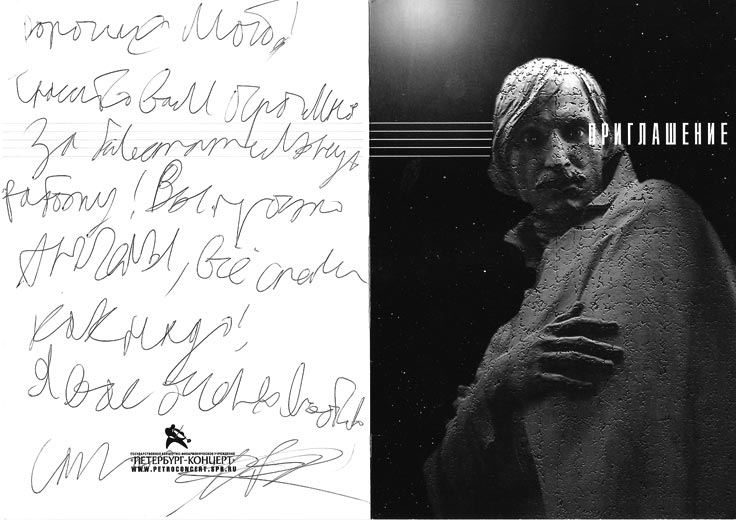 Спасибо Вам огромное
за блестательную
работу! Вы просто
АНГЕЛЫ, всё сделали
как надо!
Я Вас очень люблю
ГОСУДАРСТВЕННОЕ БЮДЖЕТНОЕ КОНЦЕРТНО-ФИЛАРМОНИЧЕСКОЕ УЧРЕЖДЕНИЕ
"ПЕТЕРБУРГ-КОНЦЕРТ"
WWW.PETROCONCERT.SPB.RU
ПРИГЛАШЕНИЕ